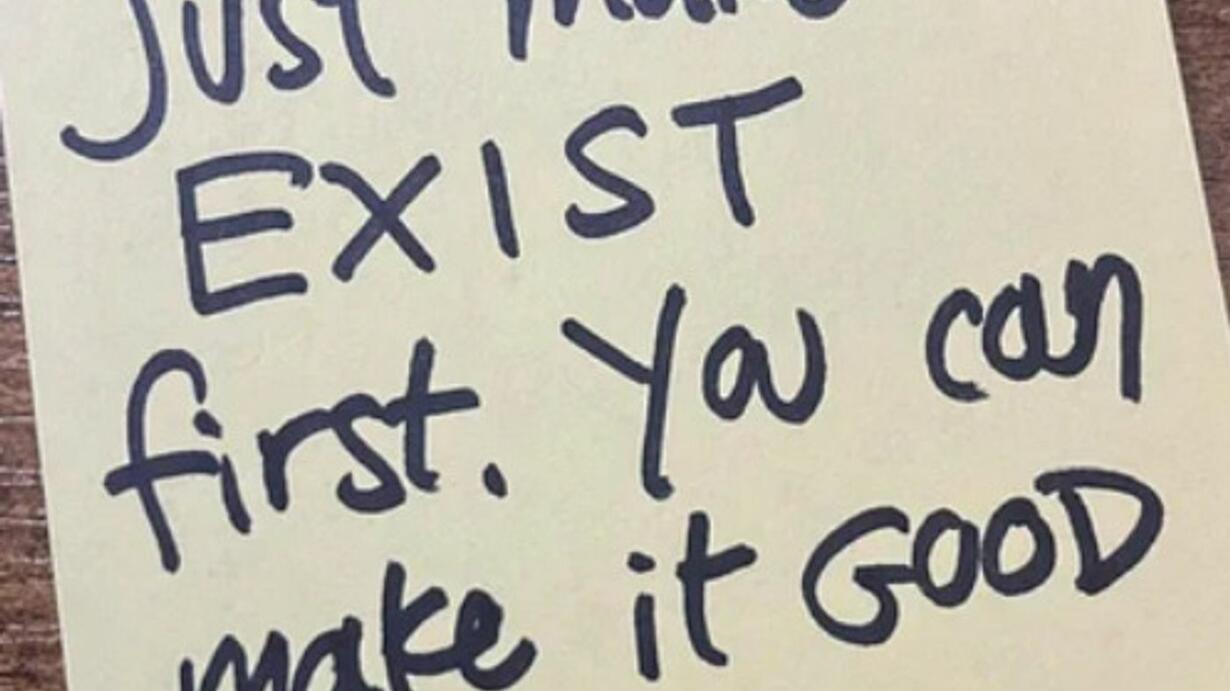 Just make
EXIST
first. You can
make it GOOD